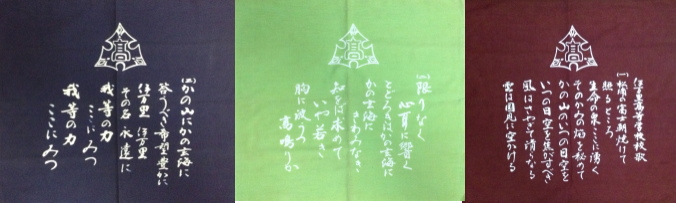 高
伊万里高等学校校歌
(一)松浦の富士朝焼けて
照るところ
生命の泉ここに湧く
そのかみの焔を秘めて
かの山のいつの日空を
いつの日空を焦がすべき
風はさやさや清らなる
雲は国見に空かける
高
(二)限りなく
心耳に響く
とどろきはかの玄海に
かの玄海に
きわみなき
知を求めて
いや若き
胸に波うつ
高鳴りか
高
(三)かの山にかの玄海に
答うべき希望豊かに
伊万里 伊万里
その名永遠に
我等の力
ここにみつ
我等の力
ここにみつ